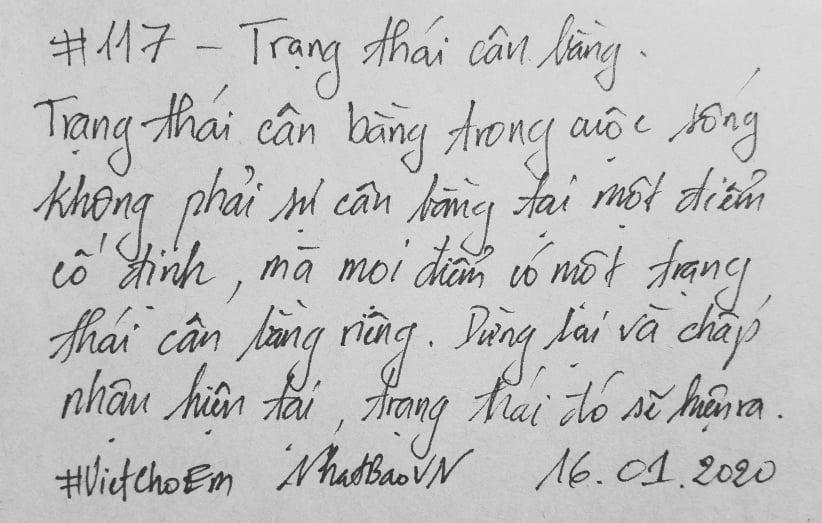 #117 - Trạng thái cân bằng.
Trạng thái cân bằng trong cuộc sống
không phải sự cân bằng tại một điểm
cố định, mà mọi điểm có một trạng
thái cân bằng riêng. Dừng lại và chấp
nhận hiện tại, trạng thái đó sẽ hiện ra.
#VietChoEm NhatBaoVN 16.01.2020